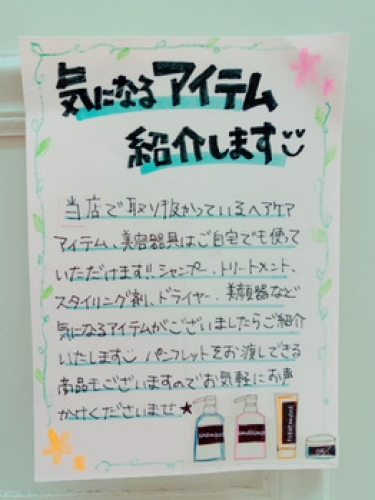 気になるアイテム
紹介します
当店で取り扱っているヘアケア
アイテム、美容器具はご自宅でも使って
いただけます!!シャンプー、トリートメント、
スタイリング剤、ドライヤー、美顔器など
気になるアイテムがございましたらご紹介
いたします パンフレットをお渡しできる
商品もございますのでお気軽にお声
かけくださいませ★
shampoo
treatment